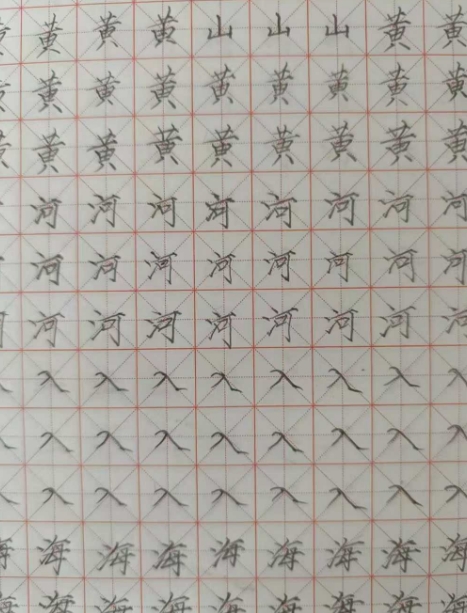 黄黄黄山山山黄黄
黄黄黄黄黄黄黄黄
黄黄黄黄黄黄黄黄
河河河河河河河河
河河河河河河河河
河河河河河河河河
入入入入入入入入
入入入入入入入入
入入入入入入入入
海海海海海海海海